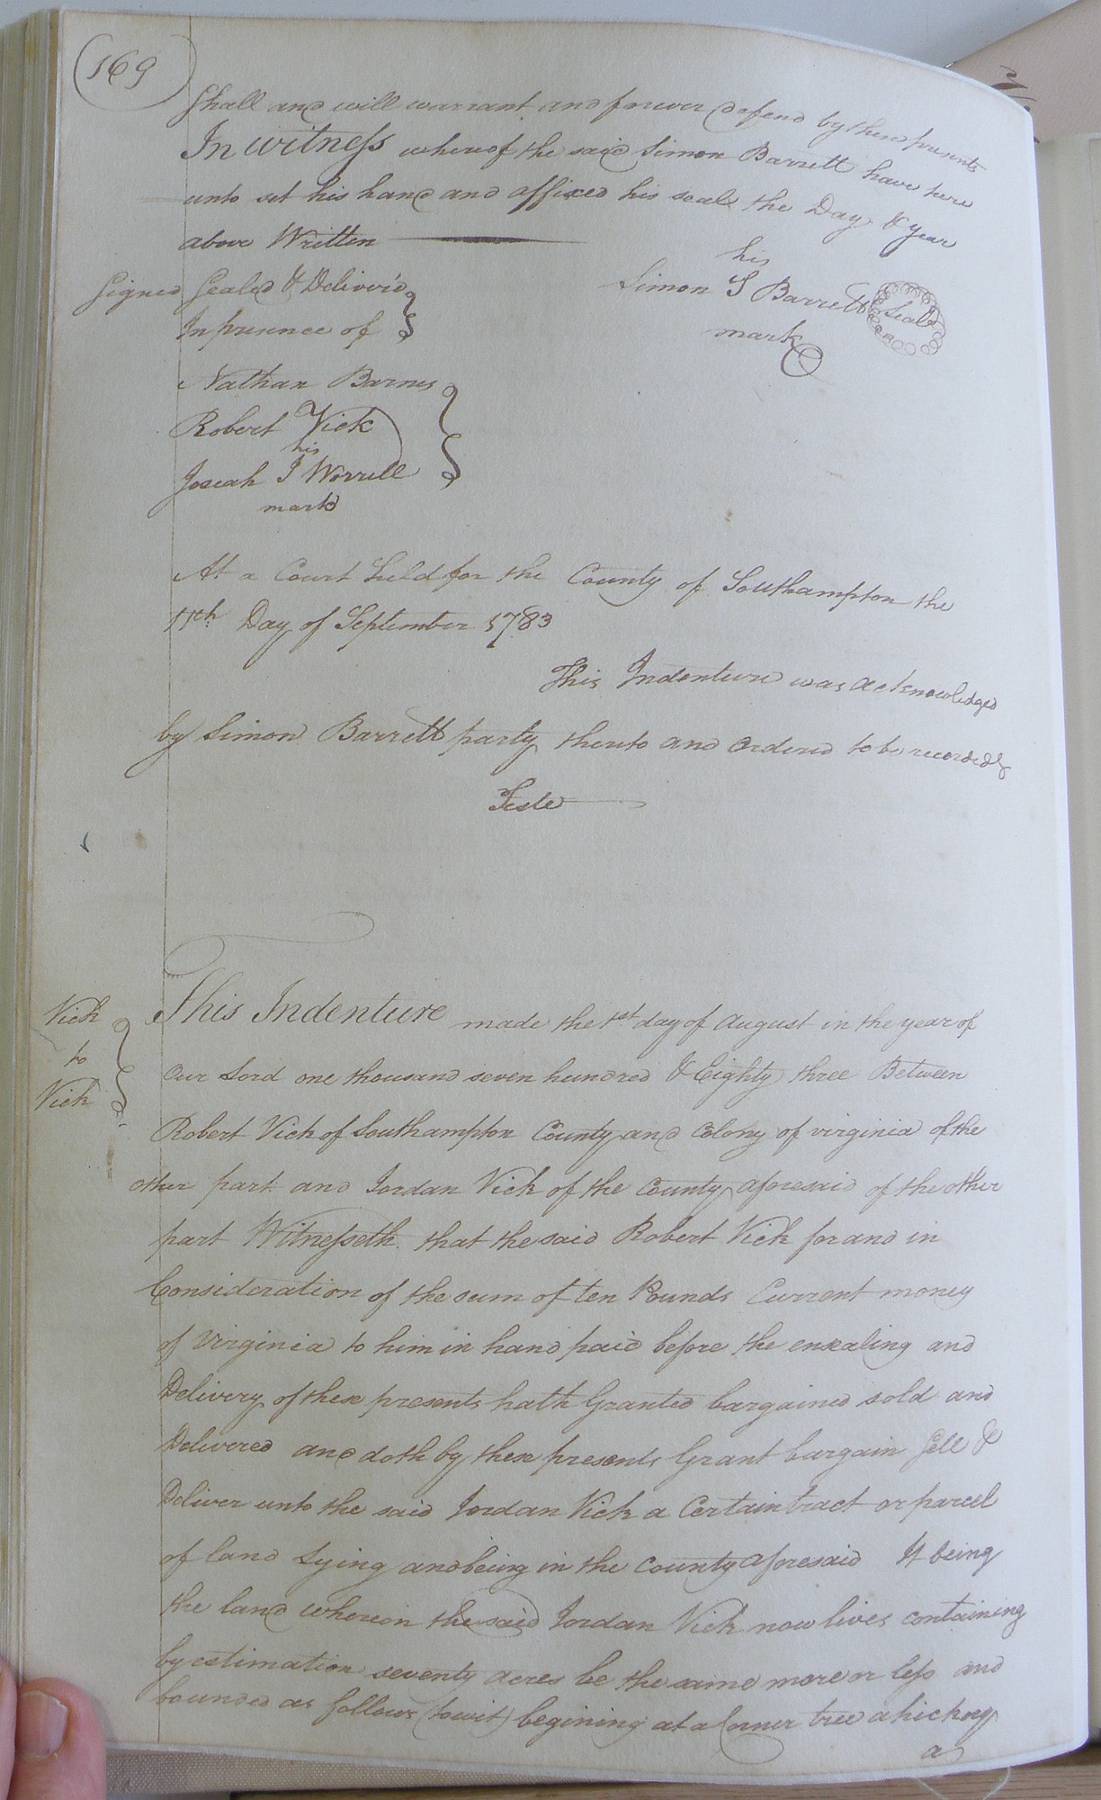 169
Shall and will warrant and forever defend by these presents
In Witness whereof the said Simon Barrett have here
unto set his hand and affixed his seal the Day & year
above Written
his
Signed Sealed & Deliver'd
Simon S Barrett Seal
In presence of
mark
Nathan Barnes
Robert Vick
his
Josiah I Worrell
mark
At a Court held for the County of Southampton the
11th Day of September 1783
This Indenture was acknowledged
by Simon Barrett party thereto and ordered to be recorded
Teste
This Indenture made the 1st day of August in the year of
Vick
to
Vick
our Lord one thousand seven hundred & Eighty three Between
Robert Vick of Southampton County and Colony of virginia of the
other part and Jordan Vick of the County aforesaid of the other
part Witnesseth that the said Robert Vick for and in
Consideration of the sum of ten Pounds Current money
of Virginia to him in hand paid before the ensealing and
Delivery of these presents hath Granted bargained sold and
Delivered and doth by these presents Grant bargain Sell &
Deliver unto the said Jordan Vick a Certain tract or parcel
of land Lying and being in the County aforesaid It being
the land whereon the said Jordan Vick now lives containing
by estimation seventy acres be the same more or less and
bounded as follows (towit) begining at a Corner tree a hickory
a